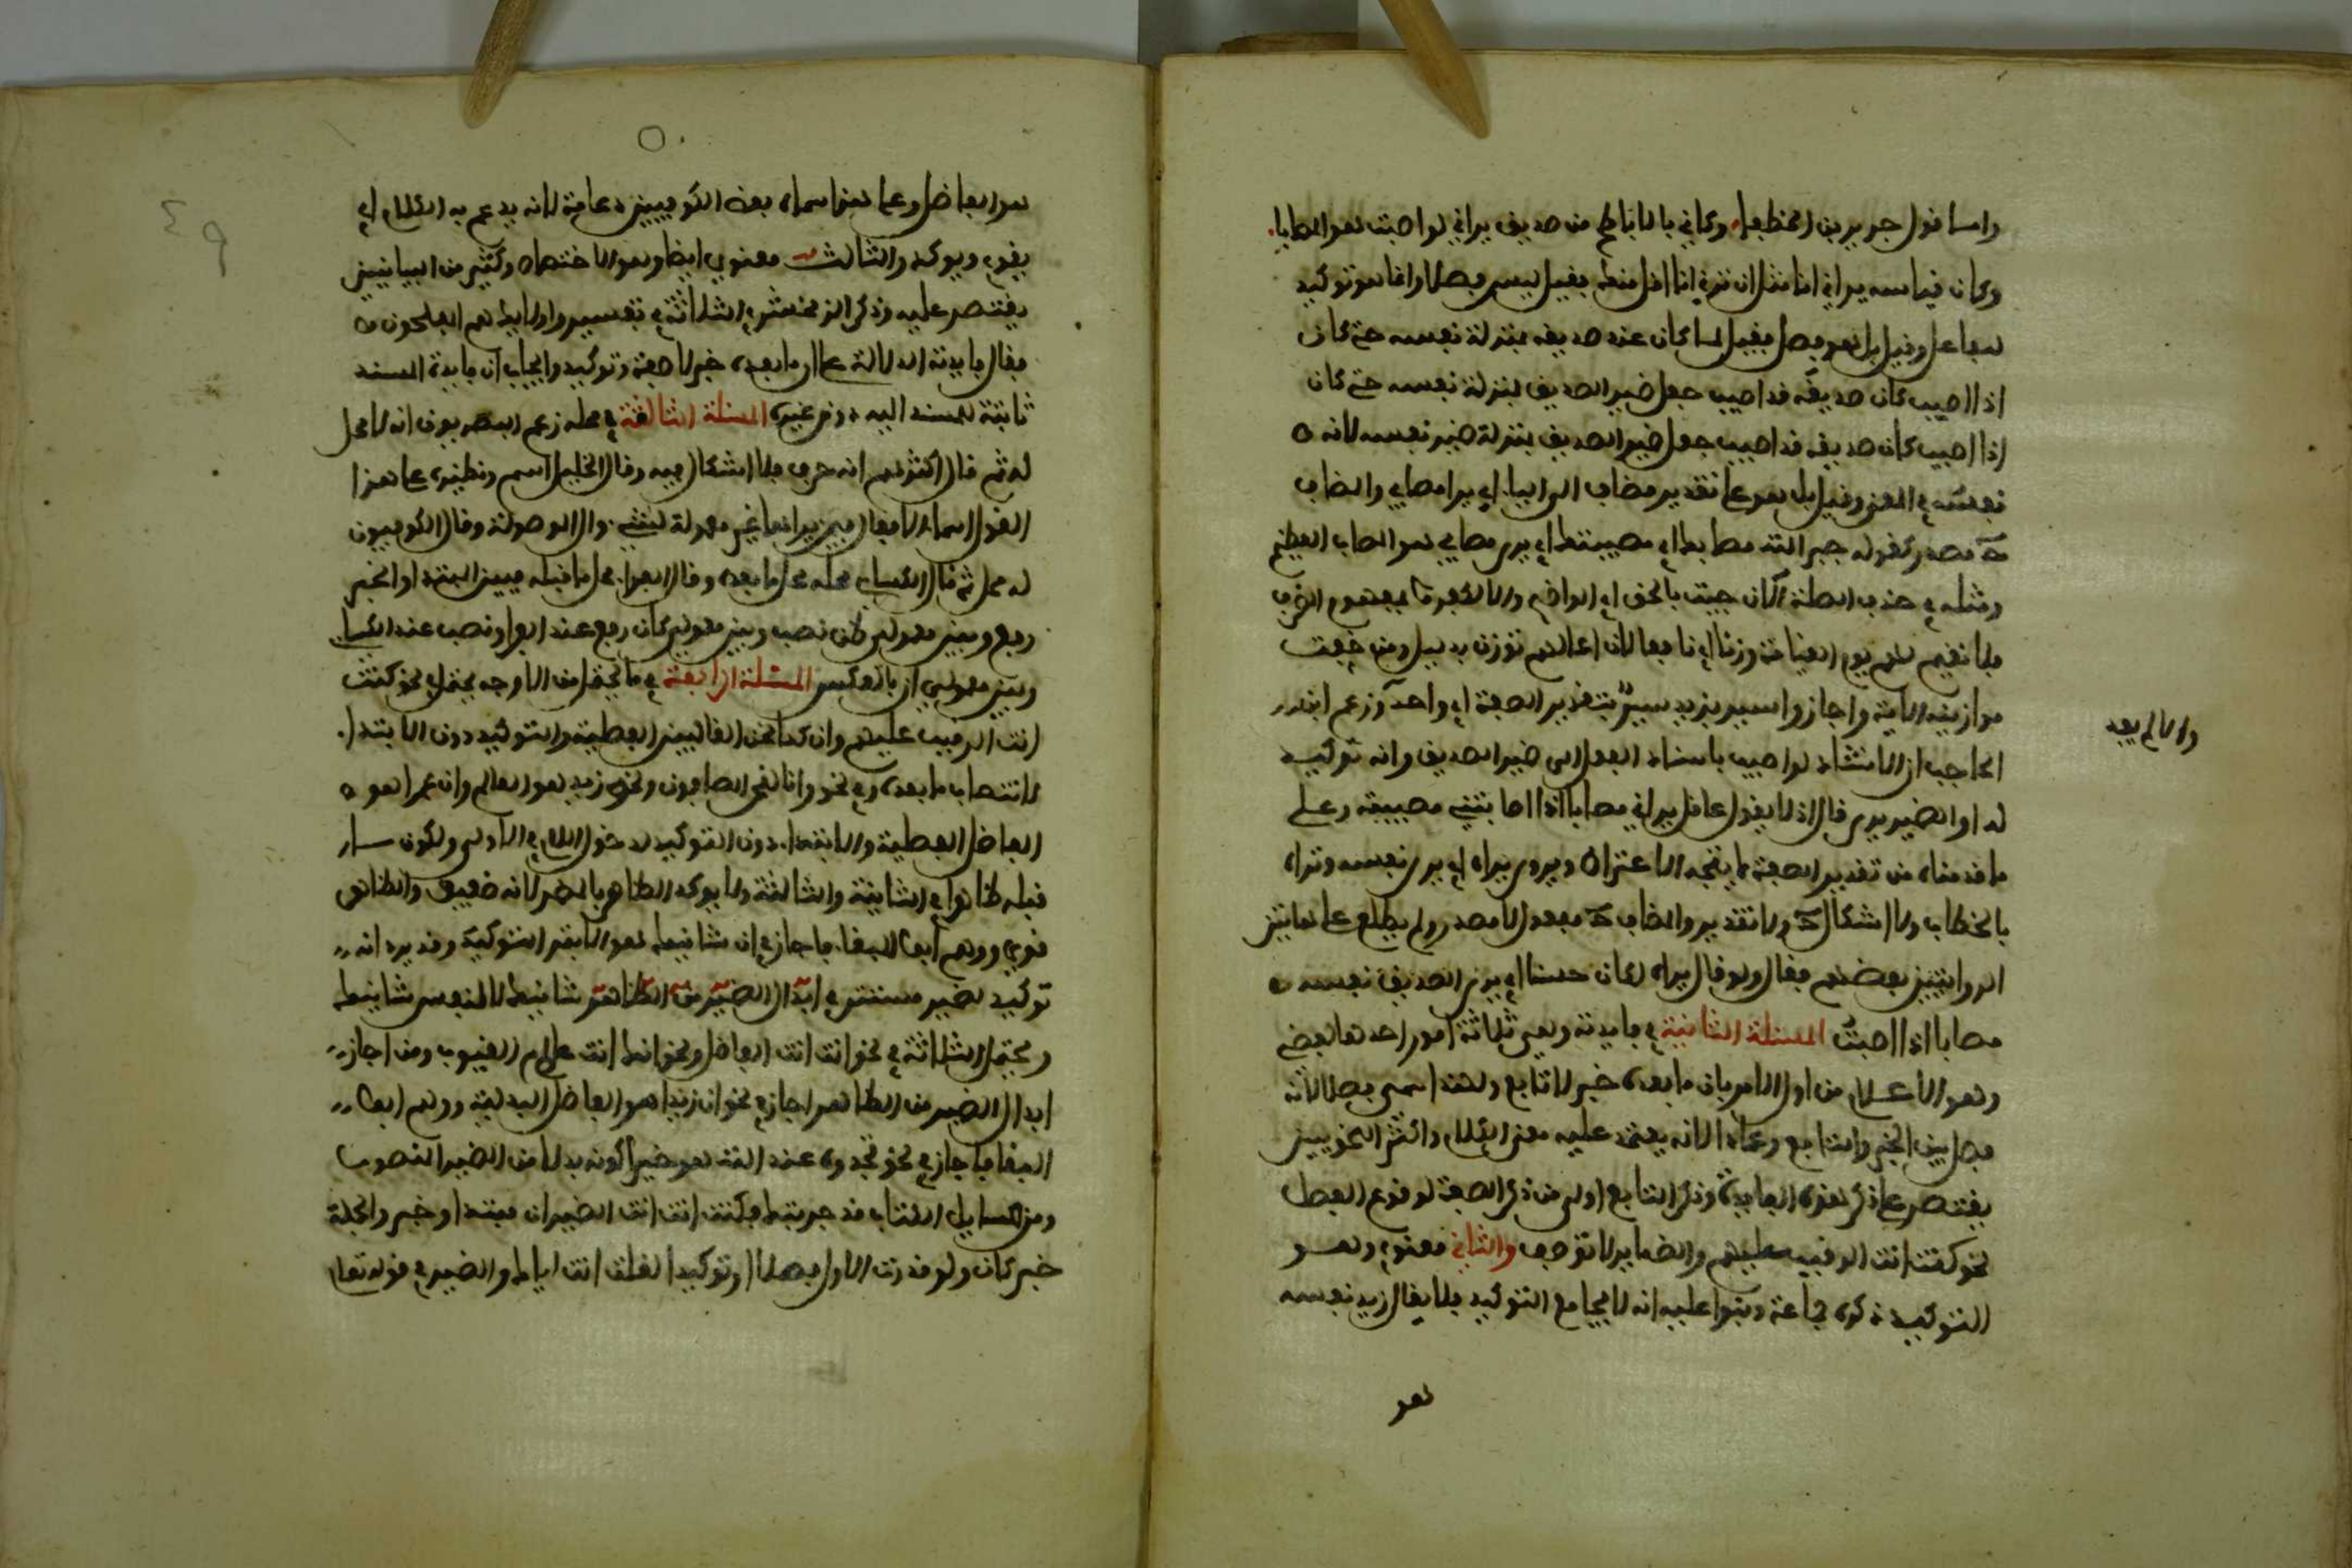 واما قول جرير بن الخطفا وكائن بالاباطح من صديق يراني لو اصبت هو المصابا
وكان قياسه يراني انا مثل ان ترني انا اقل منك فقيل ليس فصلا وانما هو توكيد
للفاعل وقيل بل هو فصل فقيل لما كان عند صديقه بمنزلة نفسه حتى كان
اذا اصيب كان صديقه قد اصيب جعل ضمير الصديق بمنزلة نفسه حتى كان
اذا اصيب كان صديقه قد اصيب جعل ضمير الصديق بمنزلة ضمير نفسه لانه
نفسه في المعنى وقيل بل هو على تقدير مضاف الى الياء اي يرا مصابي والمصاب
ح مصدر كقوله جبر الله مصابك اي مصيبتك اي يرى مصابي هو المصاب العظيم
ومثله في حذف الصفة الآن جئت بالحق اي الواضح والا لكفروا بمفهوم الظرف
فلا نقيم لهم يوم القيامة وزنا اي نافعا لان اعمالهم توزن بدليل ومن خفت
موازينه الاية واجازوا سير بزيد سير بتقدير الصفة اي واحد وزعم ابن
والا لم يفد
الحاجب ان الانشاد لو اصيب باسناد الفعل الى ضمير الصديق وانه توكيد
له او لضمير يرى قال اذ لا يقول عاقل يراني مصابا اذا اصابتني مصيبة وعلى
ما قدمناه من تقدير الصفة لا يتجه الاعتراض ويروى يراه اي يرى نفسه وتراه
بالخطاب ولا اشكال ح ولا تقدير والمصاب ح مفعول لا مصدر ولم يطلع على هاتين
الروايتين بعضهم فقال ولو قال يراه لكان حسنا اي يرى الصديق نفسه
مصابا اذا اصبت المسئلة الثانية في فايدته وهي ثلاثة امور احدها لفظي
وهو الاعلام من اول الامر بان ما بعده خبر لا تابع ولهذا سمي فصلا لانه
فصل بين الخبر والتابع وعمادا لانه يعتمد عليه معنى الكلام واكثر النحويين
يقتصر على ذكر هذه الفايدة وذكر التابع اولى من ذكر الصفة لوقوع الفصل
نحو كنت انت الرقيب عليهم والضماير لا توصف والثاني معنوي وهو
التوكيد ذكره جماعة وبنوا عليه انه لا يجامع التوكيد فلا يقال زيد نفسه
هو
هو الفاضل وعلى ذلك سماه بعض الكوفيين دعامة لانه يدعم به الكلام اي
يقوى ويوكد والثالث معنوي ايضا وهو الاختصاص وكثير من البيانيين
يقتصر عليه وذكر الزمخشري الثلاثة في تفسير واولئك هم المفلحون
فقال فايدته الدلالة على ان ما بعده خبر لا صفة وتوكيد وايجاب ان فايدة المسند
ثابتة للمسند اليه دون غيره المسئلة الثالثة في محله زعم البصريون انه لا محل
له ثم قال اكثرهم انه حرف فلا اشكال فيه وقال الخليل اسم ونظيره على هذا
القول اسماء الافعال فيمن يراها غير معمولة لشيء وال الموصولة وقال الكوفيون
له محل ثم قال الكسائي محله محل ما بعده وقال الفراء محل ما قبله فبين المبتدا والخبر
رفع وبين معمولي ظن نصب وبين معمولي كان رفع عند الفرا ونصب عند الكسائي
وبين معمولي ان بالعكس المسئلة الرابعة في ما يحتمل من الاوجه يحتمل في نحو كنت
انت الرقيب عليهم وان كنا نحن الغالبين الفصلية والتوكيد دون الابتداء
لانتصاب ما بعده وفي نحو وانا لنحن الصافون ونحو زيد هو العالم وان عمرا هو
الفاضل الفصلية والابتداء دون التوكيد لدخول اللام في الاولى ولكون ما
قبله ظاهرا في الثانية والثالثة ولا يوكد الظاهر بالمضمر لانه ضعيف والظاهر
قوي ووهم ابو البقاء فاجاز في ان شانئك هو الابتر التوكيد وقد يريد انه
توكيد لضمير مستتر في ابدال الضمير من الظاهر شانئك لا لنفس شانئك
ويحتمل الثلاثة في نحو انت انت الفاضل ونحو انك انت علام الغيوب ومن اجاز
ابدال الضمير من الظاهر اجاز في نحو ان زيدا هو الفاضل البدلية ووهم ابو
البقا فاجاز في نحو تجدوه عند الله هو خيرا كونه بدلا من الضمير المنصوب
ومن مسايل الكتاب قد جربتك فكنت انت انت الضميران مبتدا وخبر والجملة
خبر كان ولو قدرت الاول فصلا او توكيدا لقلت انت اياك والضمير في قوله تعالى